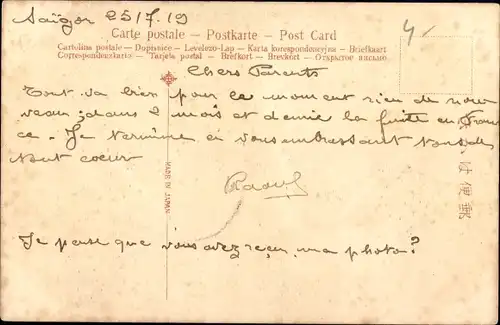 Saïgon 25/7.19
4-
Carte postale – Postkarte – Post Card
Cartolina postale – Dopisnice – Levelezo-Lap – Karta korespondencyjna – Briefkaart
Correspondenzkarta – Tarjeta postal – Brefkort – Brevkort – Открытое письмо
Chers Parents
Tout va bien pour le moment rien de nou
veau; dans 1 mois et demie la fuite en Fran
ce. Je termine en vous embrassant tous de
tout coeur
Raoul
Je pense que vous avez reçu ma photo?
MADE IN JAPAN
郵便は